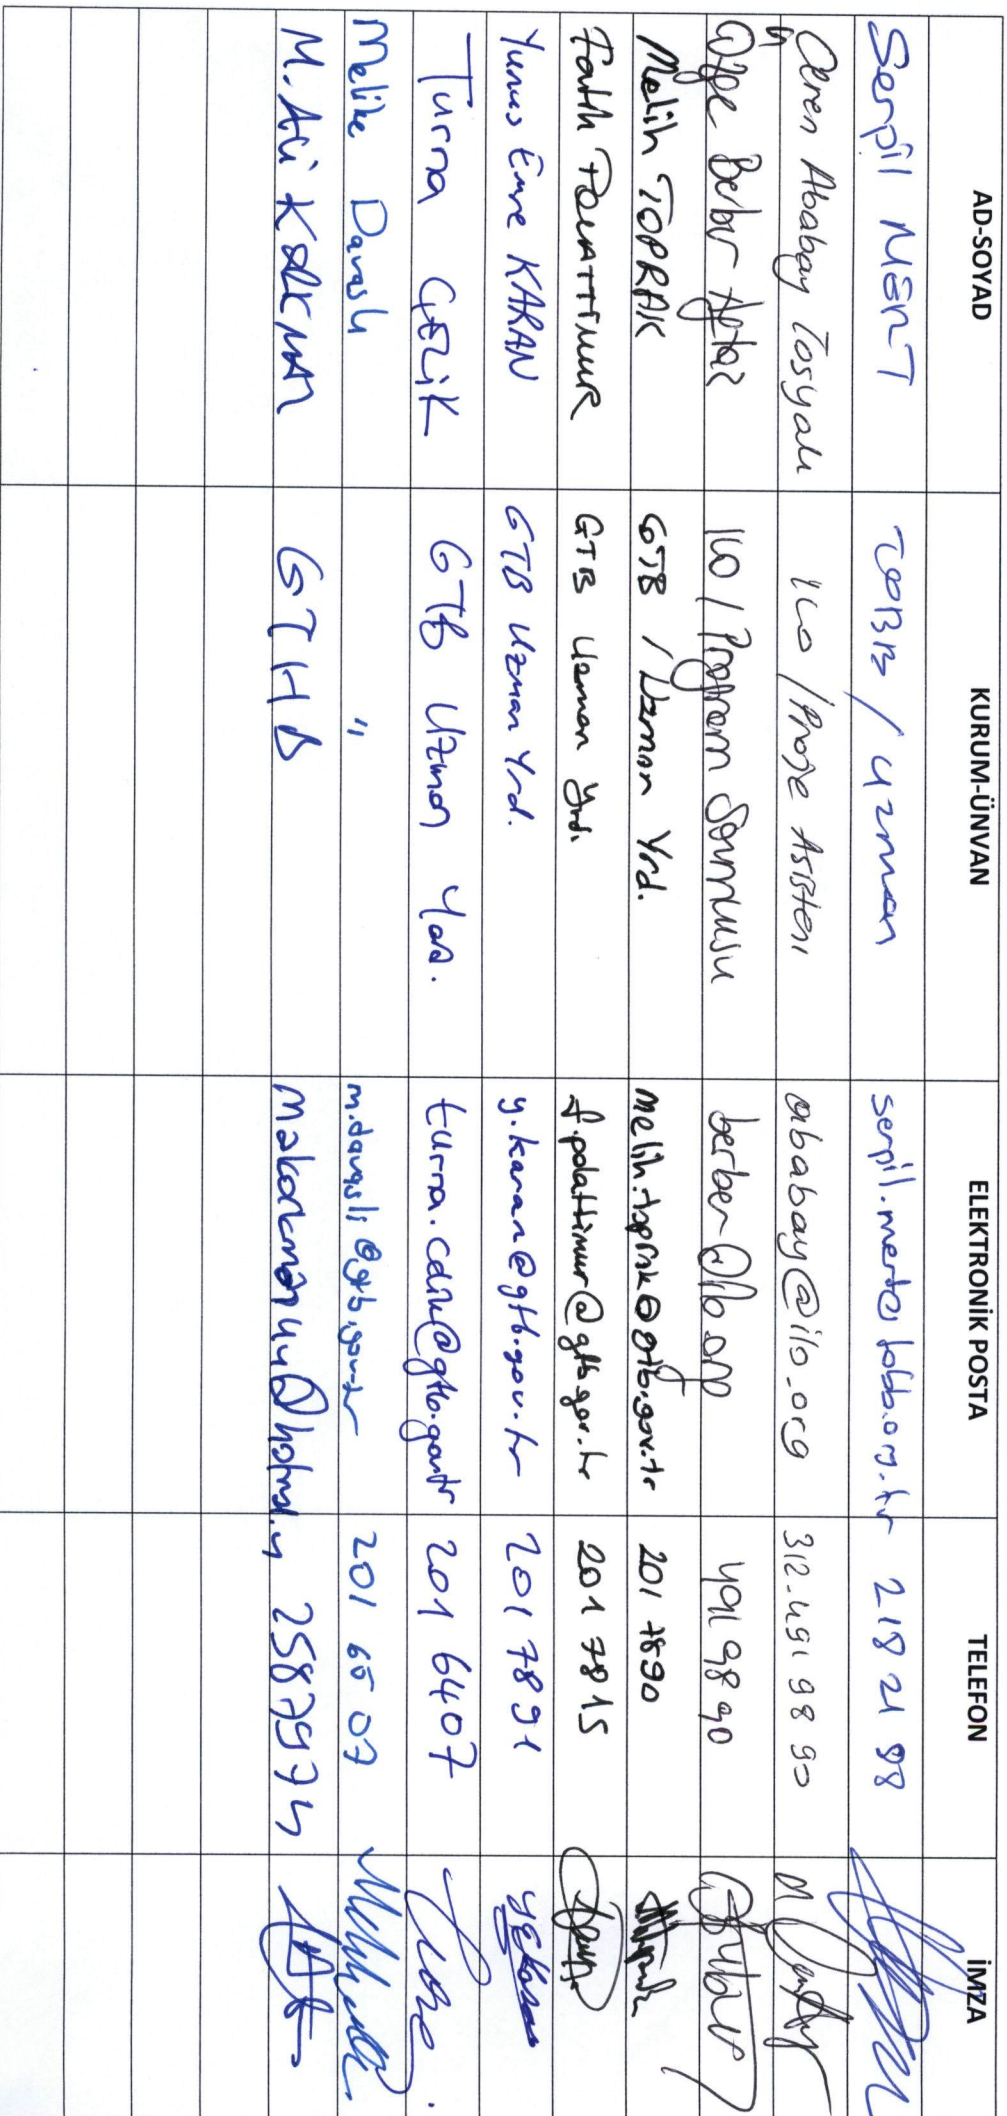 AD-SOYAD KURUM-ÜNVAN ELEKTRONİK POSTA TELEFON İMZA
Serpil MERT TOBB / Uzman serpil.mert@tobb.org.tr 218 21 98
Ceren Ababay Tosyalı ILO / Proje Asistanı ababay@ilo.org 312.491 98 90
Özge Berber Agtaş ILO / Program Sorumlusu berber@ilo.org 491 98 90
Melih TOPRAK GTB / Uzman Yrd. melih.toprak@gtb.gov.tr 201 7890
Fatih POLATTİMUR GTB Uzman Yrd. f.polattimur@gtb.gov.tr 201 7815
Yunus Emre KARAN GTB Uzman Yrd. y.karan@gtb.gov.tr 201 7891
Turna ÇELİK GTB Uzman Yard. turna.celik@gtb.gov.tr 201 6407
Melike Davaslı " m.davasli@gtb.gov.tr 201 65 07
M. Ali KORKMAZ GTHB 2587974